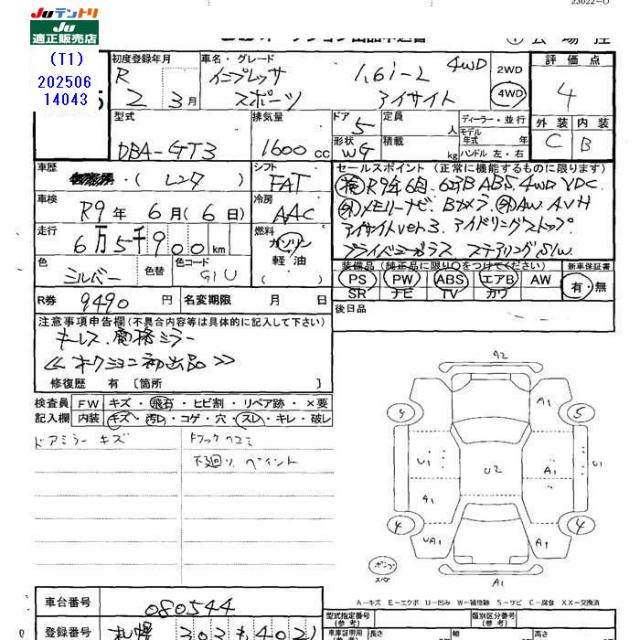 23022-0
Juテントリ
Ju
適正販売店
(T1)
202506
14043
初度登録年月
R 2 3月
車名・グレード
インプレッサ スポーツ
1,6i-L 4WD
アイサイト
2WD
4WD
評価点
4
外装 内装
C B
型式
DBA-GT3
排気量
1600 cc
ドア
5
形状
WG
定員
人
積載
kg
ディーラー・並行
モデル年式 年
ハンドル 左・右
車歴
(レンタ)
シフト
FAT
車検
R9年 6月(6日)
冷房
AAC
走行
6万5千900km
燃料
ガソリン
軽油
色
シルバー
色替
色コード
G1U
R券
9490円
名変期限 月 日
セールスポイント(正常に機能するものに限ります)
メモリーナビ Bカメラ AW. AVH
アイサイトver3. アイドリングストップ
プライバシーガラス ステアリングS/W.
装備品(純正品に限り○をつけてください)
PS PW ABS エアB AW
SR ナビ TV カワ
新車保証書
有・無
後日品
注意事項申告欄(不具合内容等は具体的に記入して下さい)
キーレス、電格ミラー
<<オークション初出品>>
修復歴 有 〔箇所 〕
検査員
記入欄
FW キズ・飛石・ヒビ割・リペア跡・×要
内装 キズ・汚れ・コゲ・穴・スレ・キレ・破レ
ドアミラー キズ
トランク クスミ
下廻り、ペイント
A2
A1
4
5
U1
U2
A1
U1
A1
A1
4
4
UA1
UA1
A1
A-キズ E-エクボ U-凹み W-補修跡 S-サビ C-腐食 XX-交換済
車台番号
080544
登録番号
札幌 303 も 402
型式指定番号
(参考)
類別区分番号
(参考)
長さ
幅
高さ